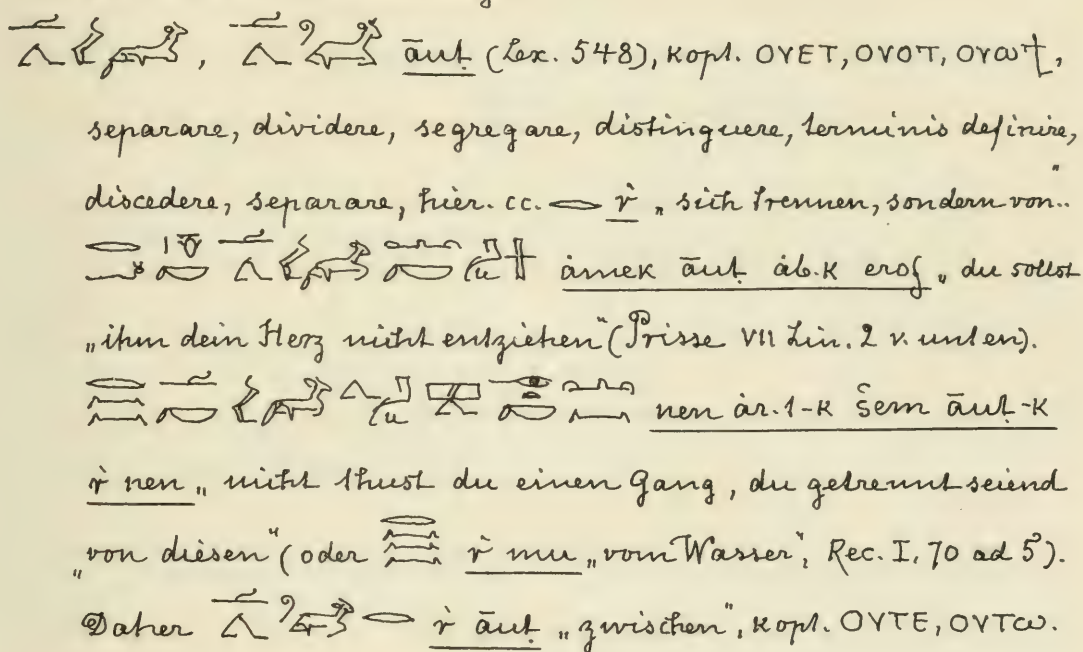 , āuṭ (Lex. 548), kopt. ΟΥΕΤ, ΟΥΟΤ, ΟΥⲰϯ,
separare, dividere, segregare, distinguere, terminis definire,
discedere, separare, hier. cc. r̀ „sich trennen, sondern von“.
àmek āuṭ àb.k erof „du sollst
„ihm dein Herz nicht entziehen“ (Prisse VII Lin. 2 v. unten).
nen àr.1-k šem āuṭ-k
r̀ nen „nicht thust du einen Gang, du getrennt seiend
„von diesen“ (oder r̀ mu „vom Wasser“, Rec. I, 70 ad 5).
Daher r̀ āuṭ „zwischen“, kopt. ΟΥΤΕ, ΟΥΤⲰ.